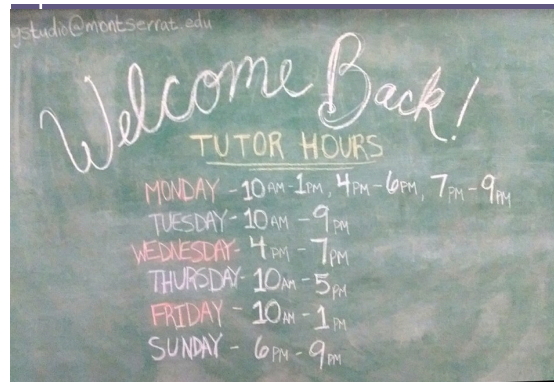 ystudio@montserrat.edu
Welcome Back!
TUTOR HOURS
MONDAY - 10AM-1PM, 4PM-6PM, 7PM-9PM
TUESDAY- 10AM - 9PM
WEDNESDAY- 4PM - 7PM
THURSDAY- 10AM - 5PM
FRIDAY - 10AM - 1PM
SUNDAY - 6PM - 9PM